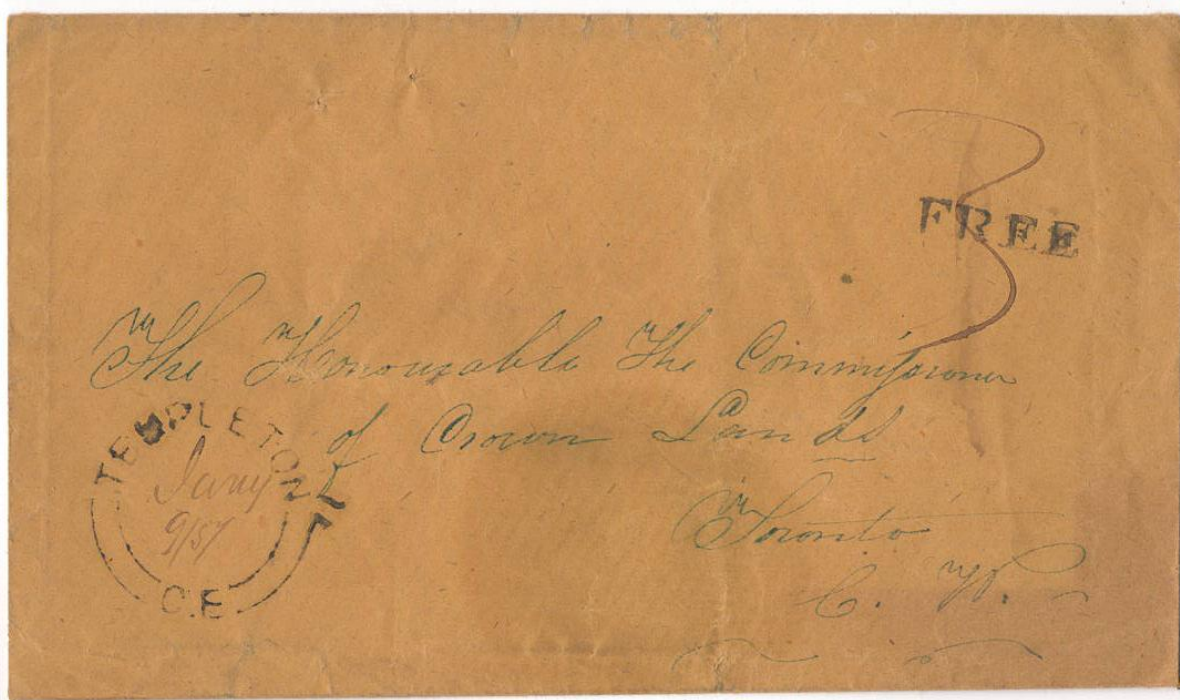 3
FREE
The Honourable The Commissioner
of Crown Lands
Toronto
C. W.
TEMPLETON
Jany
9/57
C.E